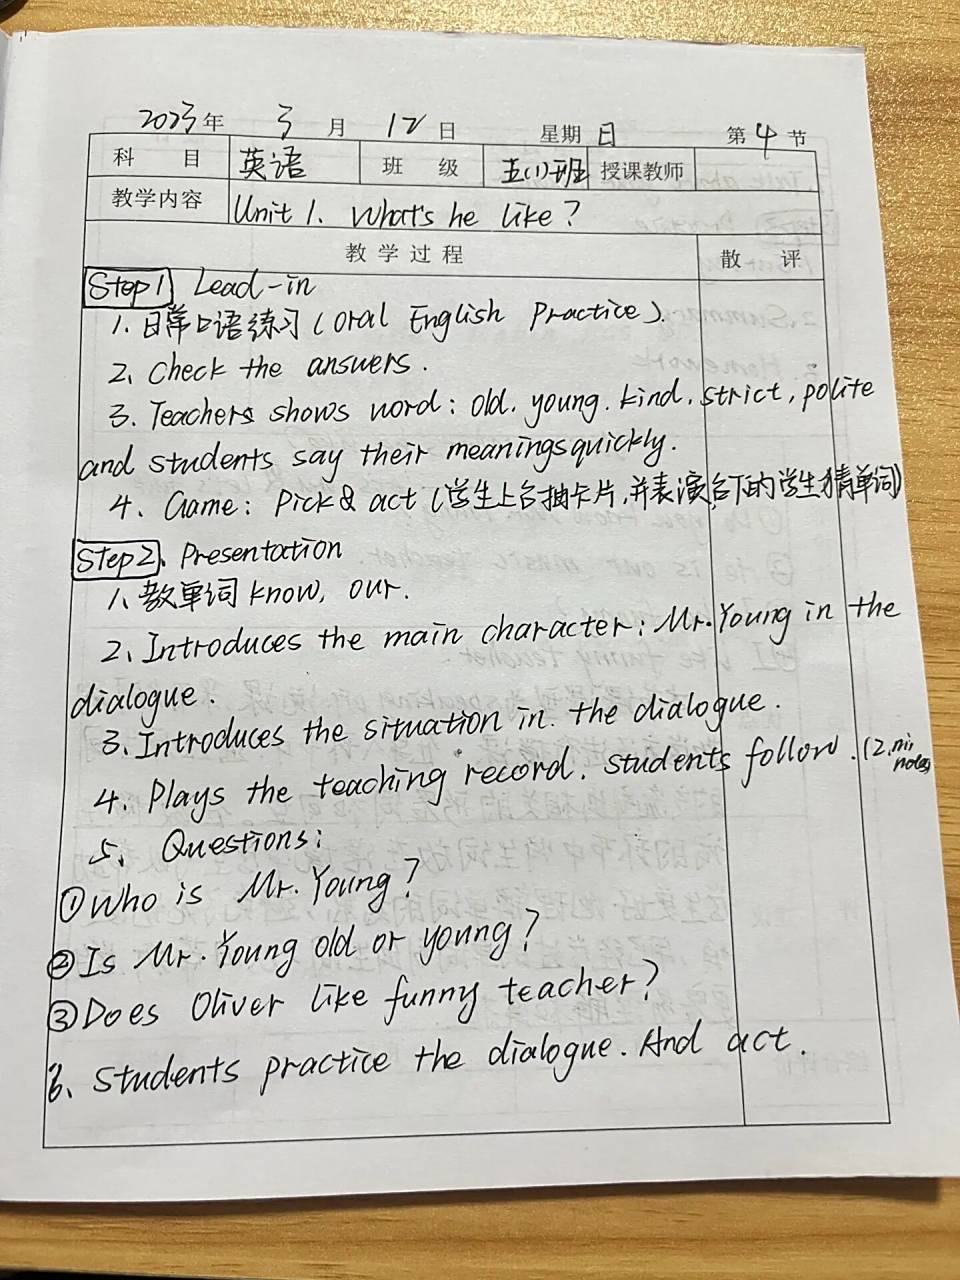 2023年 3月 12日 星期日 第4节
科 目 英语 班 级 五(1)班 授课教师
教学内容 Unit 1. What's he like?
教 学 过 程 散 评
Step 1 Lead-in
1. 日常口语练习 (Oral English Practice).
2. Check the answers.
3. Teachers shows word: old. young. kind. strict, polite
and students say their meanings quickly.
4. Game: Pick & act (学生上台抽卡片,并表演,台下的学生猜单词)
Step 2. Presentation
1. 教单词 know, our.
2. Introduces the main character: Mr. Young in the
dialogue.
3. Introduces the situation in the dialogue.
4. Plays the teaching record. students follow. (2.
5. Questions:
① Who is Mr. Young?
② Is Mr. Young old or young?
③ Does Oliver like funny teacher?
6. Students practice the dialogue. And act.